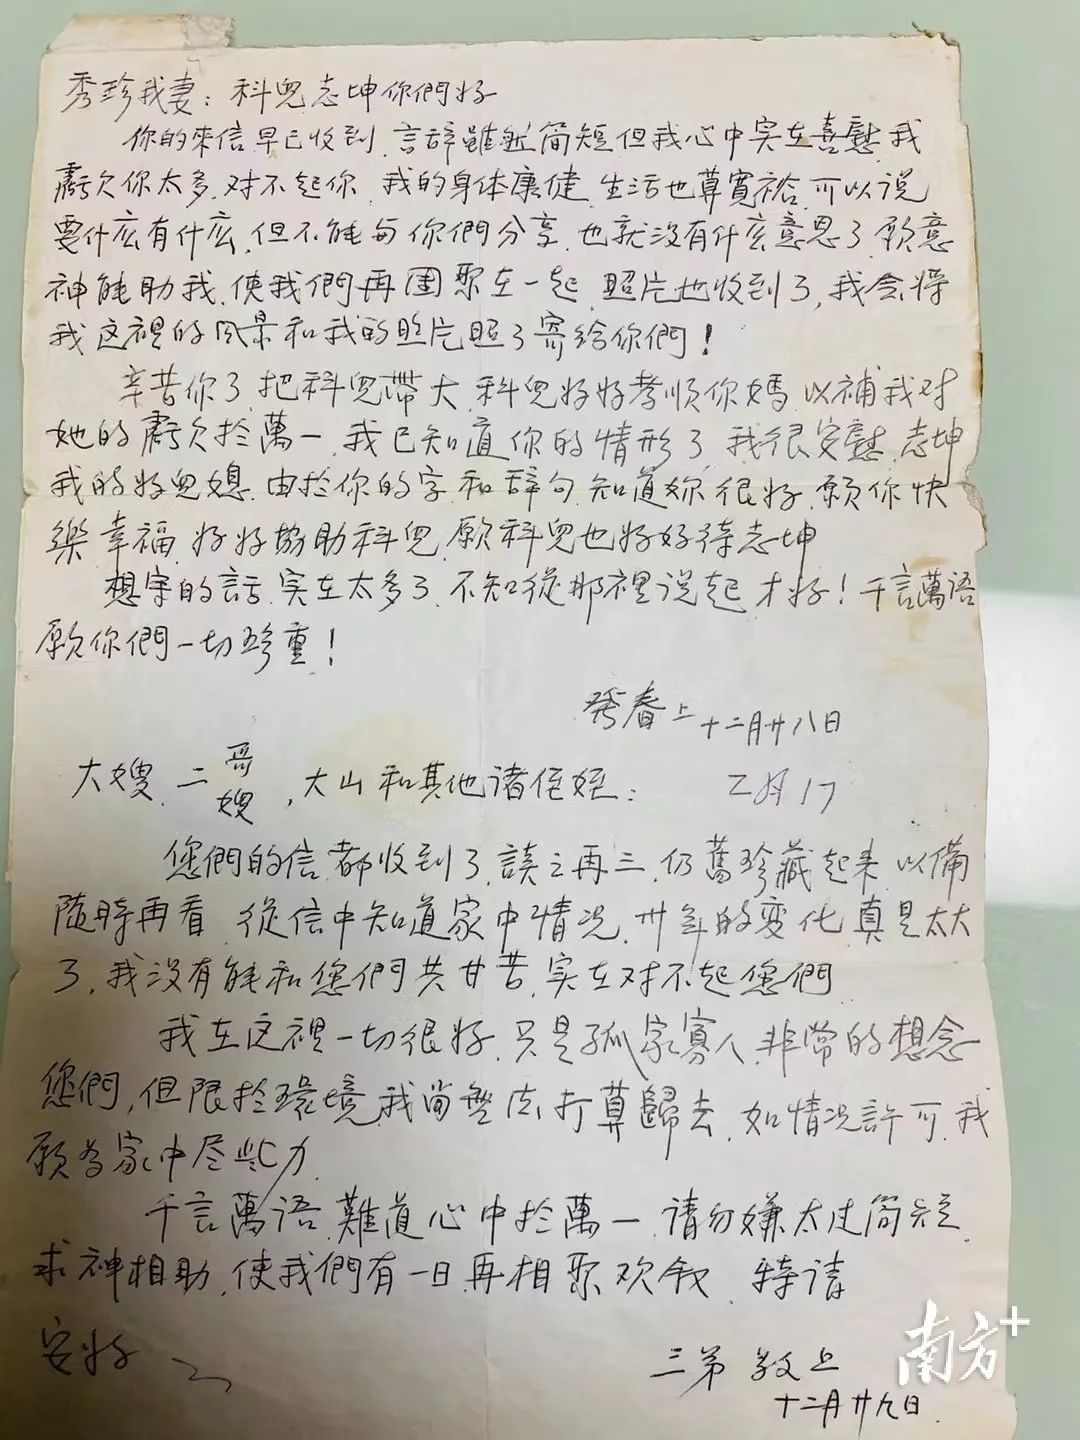 秀珍我妻：科兒志坤你們好
你的來信早已收到，言辞雖然简短但我心中实在喜慰，我
虧欠你太多，对不起你，我的身体康健，生活也算寬裕，可以说
要什広有什広，但不能与你們分享，也就没有什広意思了，願意
神能助我，使我們再团聚在一起，照片也收到了，我会将
我这裡的风景和我的照片照了寄给你們！
辛苦你了，把科兒帶大，科兒好好孝順你媽，以補我对
她的虧欠扵萬一，我已知道你的情形了，我很安慰，志坤
我的好兒媳，由扵你的字和辞句，知道妳很好，願你快
樂幸福，好好協助科兒，願科兒也好好待志坤
想字的話，实在太多了，不知從那裡说起才好！千言萬语
願你們一切珍重！
發春上 十二月廿八日
大嫂，二哥嫂，大山和其他诸侄姪：
二月17
您們的信都收到了，读之再三，仍舊珍藏起来，以備
随時再看，從信中知道家中情况，卅年的变化，真是太大
了，我没有能和您們共甘苦，实在对不起您們
我在这裡一切很好，只是孤家寡人，非常的想念
您們，但限扵環境，我尚無法打算歸去，如情况許可，我
願为家中尽些力
千言萬语，難道心中扵萬一，请勿嫌太过简短，
求神相助，使我們有一日再相聚欢叙，特请
安好
三弟 敬上
十二月廿九日
南方+